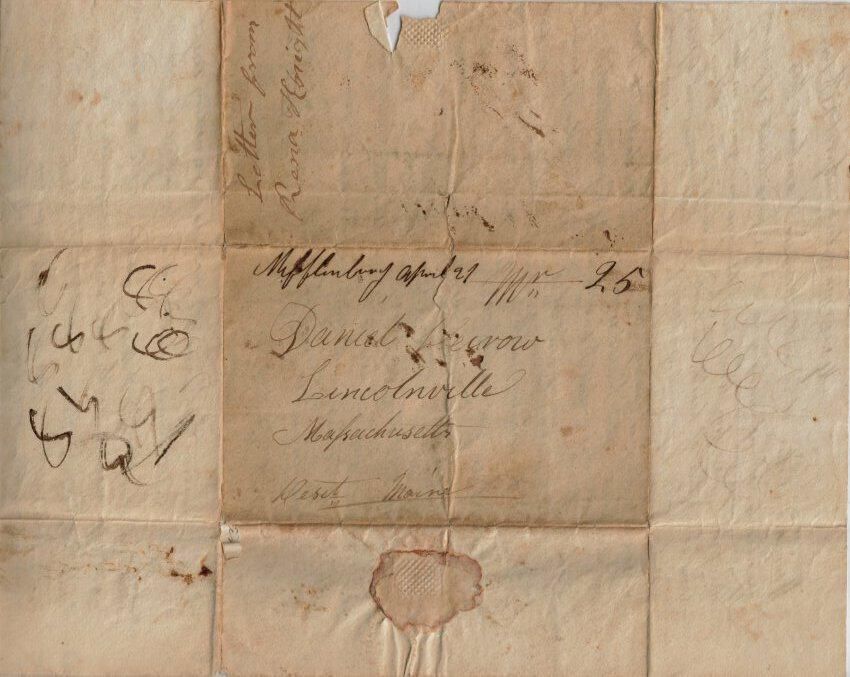 Letter from
Rena Knight
Mifflinburg April 21 Mr 25
Daniel Decrow
Lincolnville
Maſsachusetts
Maine